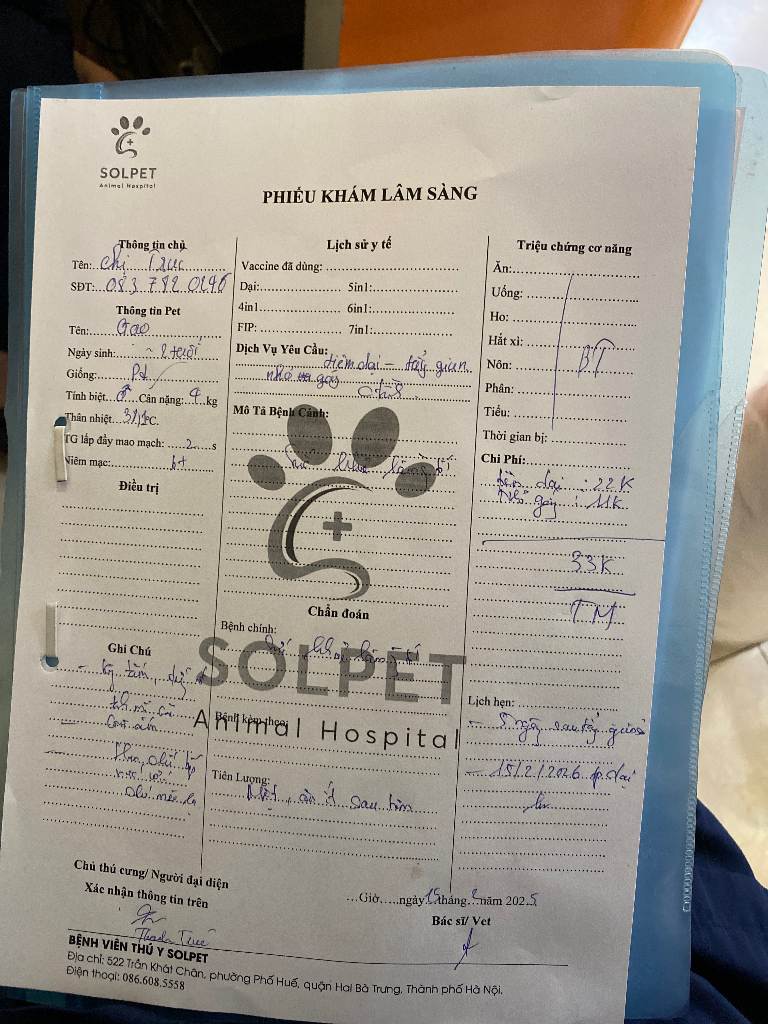 SOLPET
Animal Hospital
PHIẾU KHÁM LÂM SÀNG
Thông tin chủ
Tên: chị Trúc
SĐT: 083 782 0296
Thông tin Pet
Tên: Gạo
Ngày sinh: ~ 2 tuổi
Giống: Pd
Tính biệt: ♂ Cân nặng: 9 kg
Thân nhiệt °C.
TG lấp đầy mao mạch: 2 s
Niêm mạc: bt
Điều trị
Ghi Chú
Lịch sử y tế
Vaccine đã dùng:
Dại: 5in1:
4in1 6in1:
FIP: 7in1:
Dịch Vụ Yêu Cầu: tiêm dại - tẩy giun
nhỏ gáy
Mô Tả Bệnh Cảnh:
Chẩn đoán
Bệnh chính:
SOLPET
Bệnh kèm theo:
Animal Hospital
Tiên Lượng:
Mệt, ăn ít sau tiêm
Triệu chứng cơ năng
Ăn:
Uống:
Ho:
Hắt xì:
Nôn: BT
Phân:
Tiểu:
Thời gian bị:
Chi Phí:
tiêm dại : 22K
Nhỏ gáy : 11K
33K
TM
Lịch hẹn:
- ngày sau tẩy giun
- 15/2/2026 dại
Chủ thú cưng/ Người đại diện
Xác nhận thông tin trên
Thanh Trúc
...Giờ.....ngày 15 tháng 2 năm 2025
Bác sĩ/ Vet
BỆNH VIÊN THÚ Y SOLPET
Địa chỉ: 522 Trần Khát Chân, phường Phố Huế, quận Hai Bà Trưng, Thành phố Hà Nội.
Điện thoại: 086.608.5558